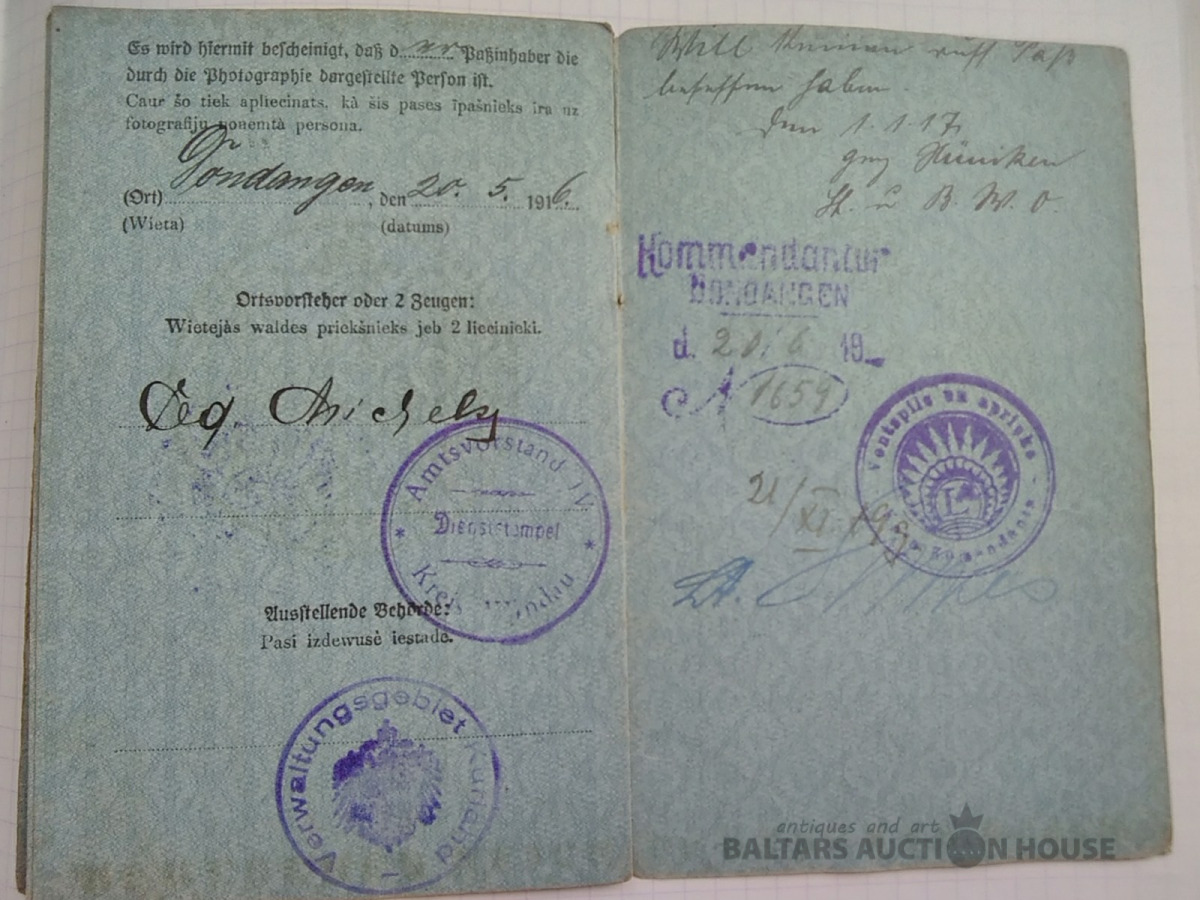 Es wird hiermit bescheinigt, daß d...er...Paßinhaber die
durch die Photographie dargestellte Person ist.
Caur šo tiek apliecinats, kà šis pases īpašnieks ira uz
fotografiju noņemtà persona.
(Ort) Dondangen, den 20. 5. 1916.
(Wieta) (datums)
Ortsvorsteher oder 2 Zeugen:
Wietejàs waldes priekšnieks jeb 2 liecinieki.
Amtsvorstand IV
Dienststempel
Kreis Windau
Ausstellende Behörde:
Pasi izdewusè iestade.
Verwaltungsgebiet Kurland
Paß
haben.
den 1.1.17.
Kommandantur
DONDANGEN
d. 20. 6 19
1659
Ventspils un apriņķa
Komandants
21/XI 19
Lt.
antiques and art
BALTARS AUCTION HOUSE